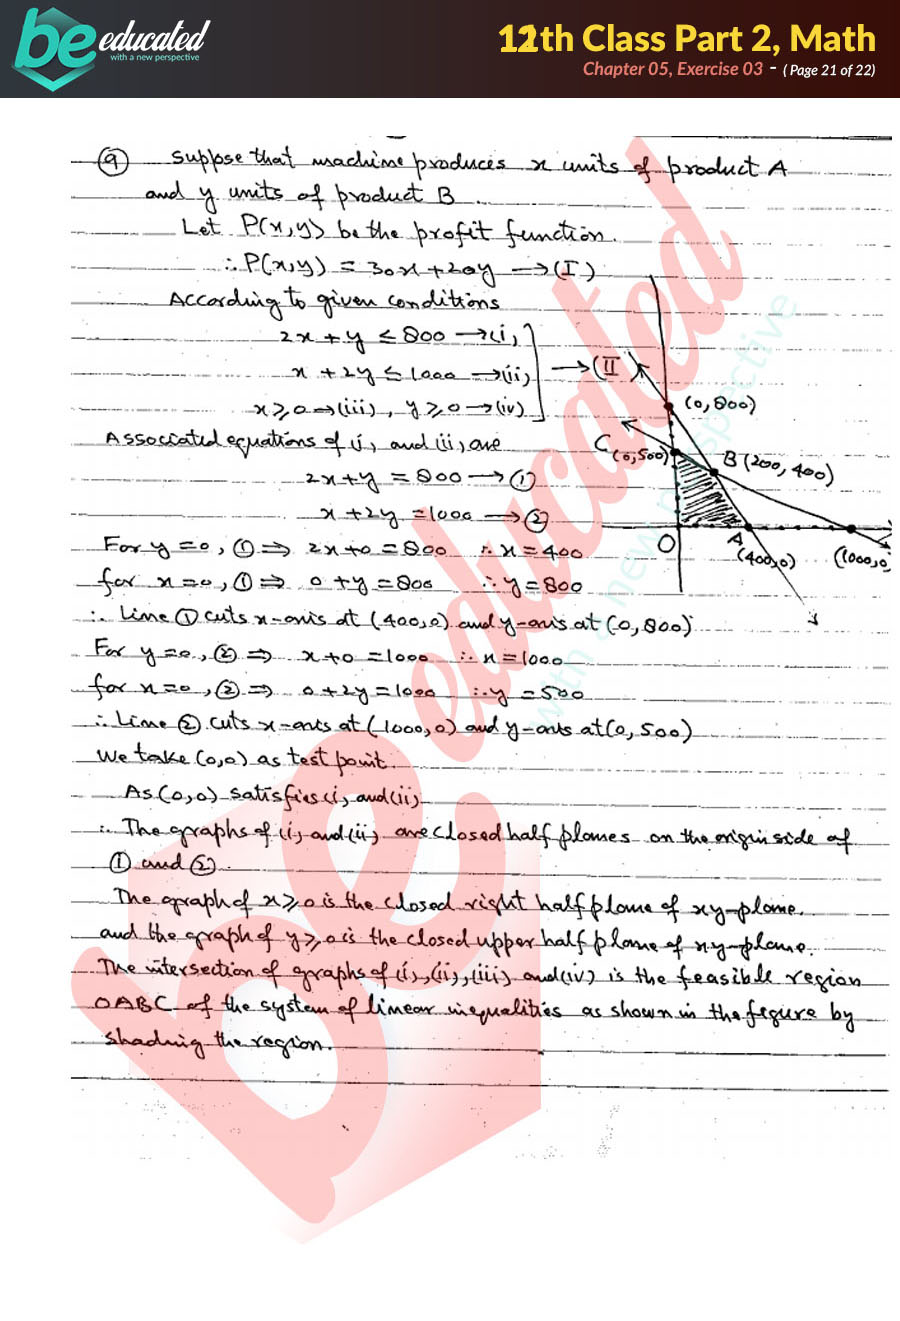 be educated
with a new perspective
12th Class Part 2, Math
Chapter 05, Exercise 03 - ( Page 21 of 22)
(9) Suppose that machine produces x units of product A
and y units of product B
Let P(x,y) be the profit function.
∴ P(x,y) = 30x + 20y → (I)
According to given conditions
2x + y ≤ 800 → (i)
x + 2y ≤ 1000 → (ii)
→ (II)
x ≥ 0 → (iii) , y ≥ 0 → (iv)
(0,800)
C (0,500)
B (200,400)
O
A (400,0)
(1000,0)
Associated equations of (i) and (ii) are
2x + y = 800 → ①
x + 2y = 1000 → ②
For y = 0 , ① ⇒ 2x + 0 = 800 ∴ x = 400
for x = 0 , ① ⇒ 0 + y = 800 ∴ y = 800
∴ Line ① cuts x-axis at (400,0) and y-axis at (0,800)
For y = 0 , ② ⇒ x + 0 = 1000 ∴ x = 1000
for x = 0 , ② ⇒ 0 + 2y = 1000 ∴ y = 500
∴ Line ② cuts x-axis at (1000,0) and y-axis at (0,500)
We take (0,0) as test point.
As (0,0) satisfies (i) and (ii)
∴ The graphs of (i) and (ii) are closed half planes on the origin side of
① and ②
The graph of x ≥ 0 is the closed right half plane of xy-plane.
and the graph of y ≥ 0 is the closed upper half plane of xy-plane.
The intersection of graphs of (i), (ii), (iii) and (iv) is the feasible region
OABC of the system of linear inequalities as shown in the figure by
shading the region.
be educated
with a new perspective